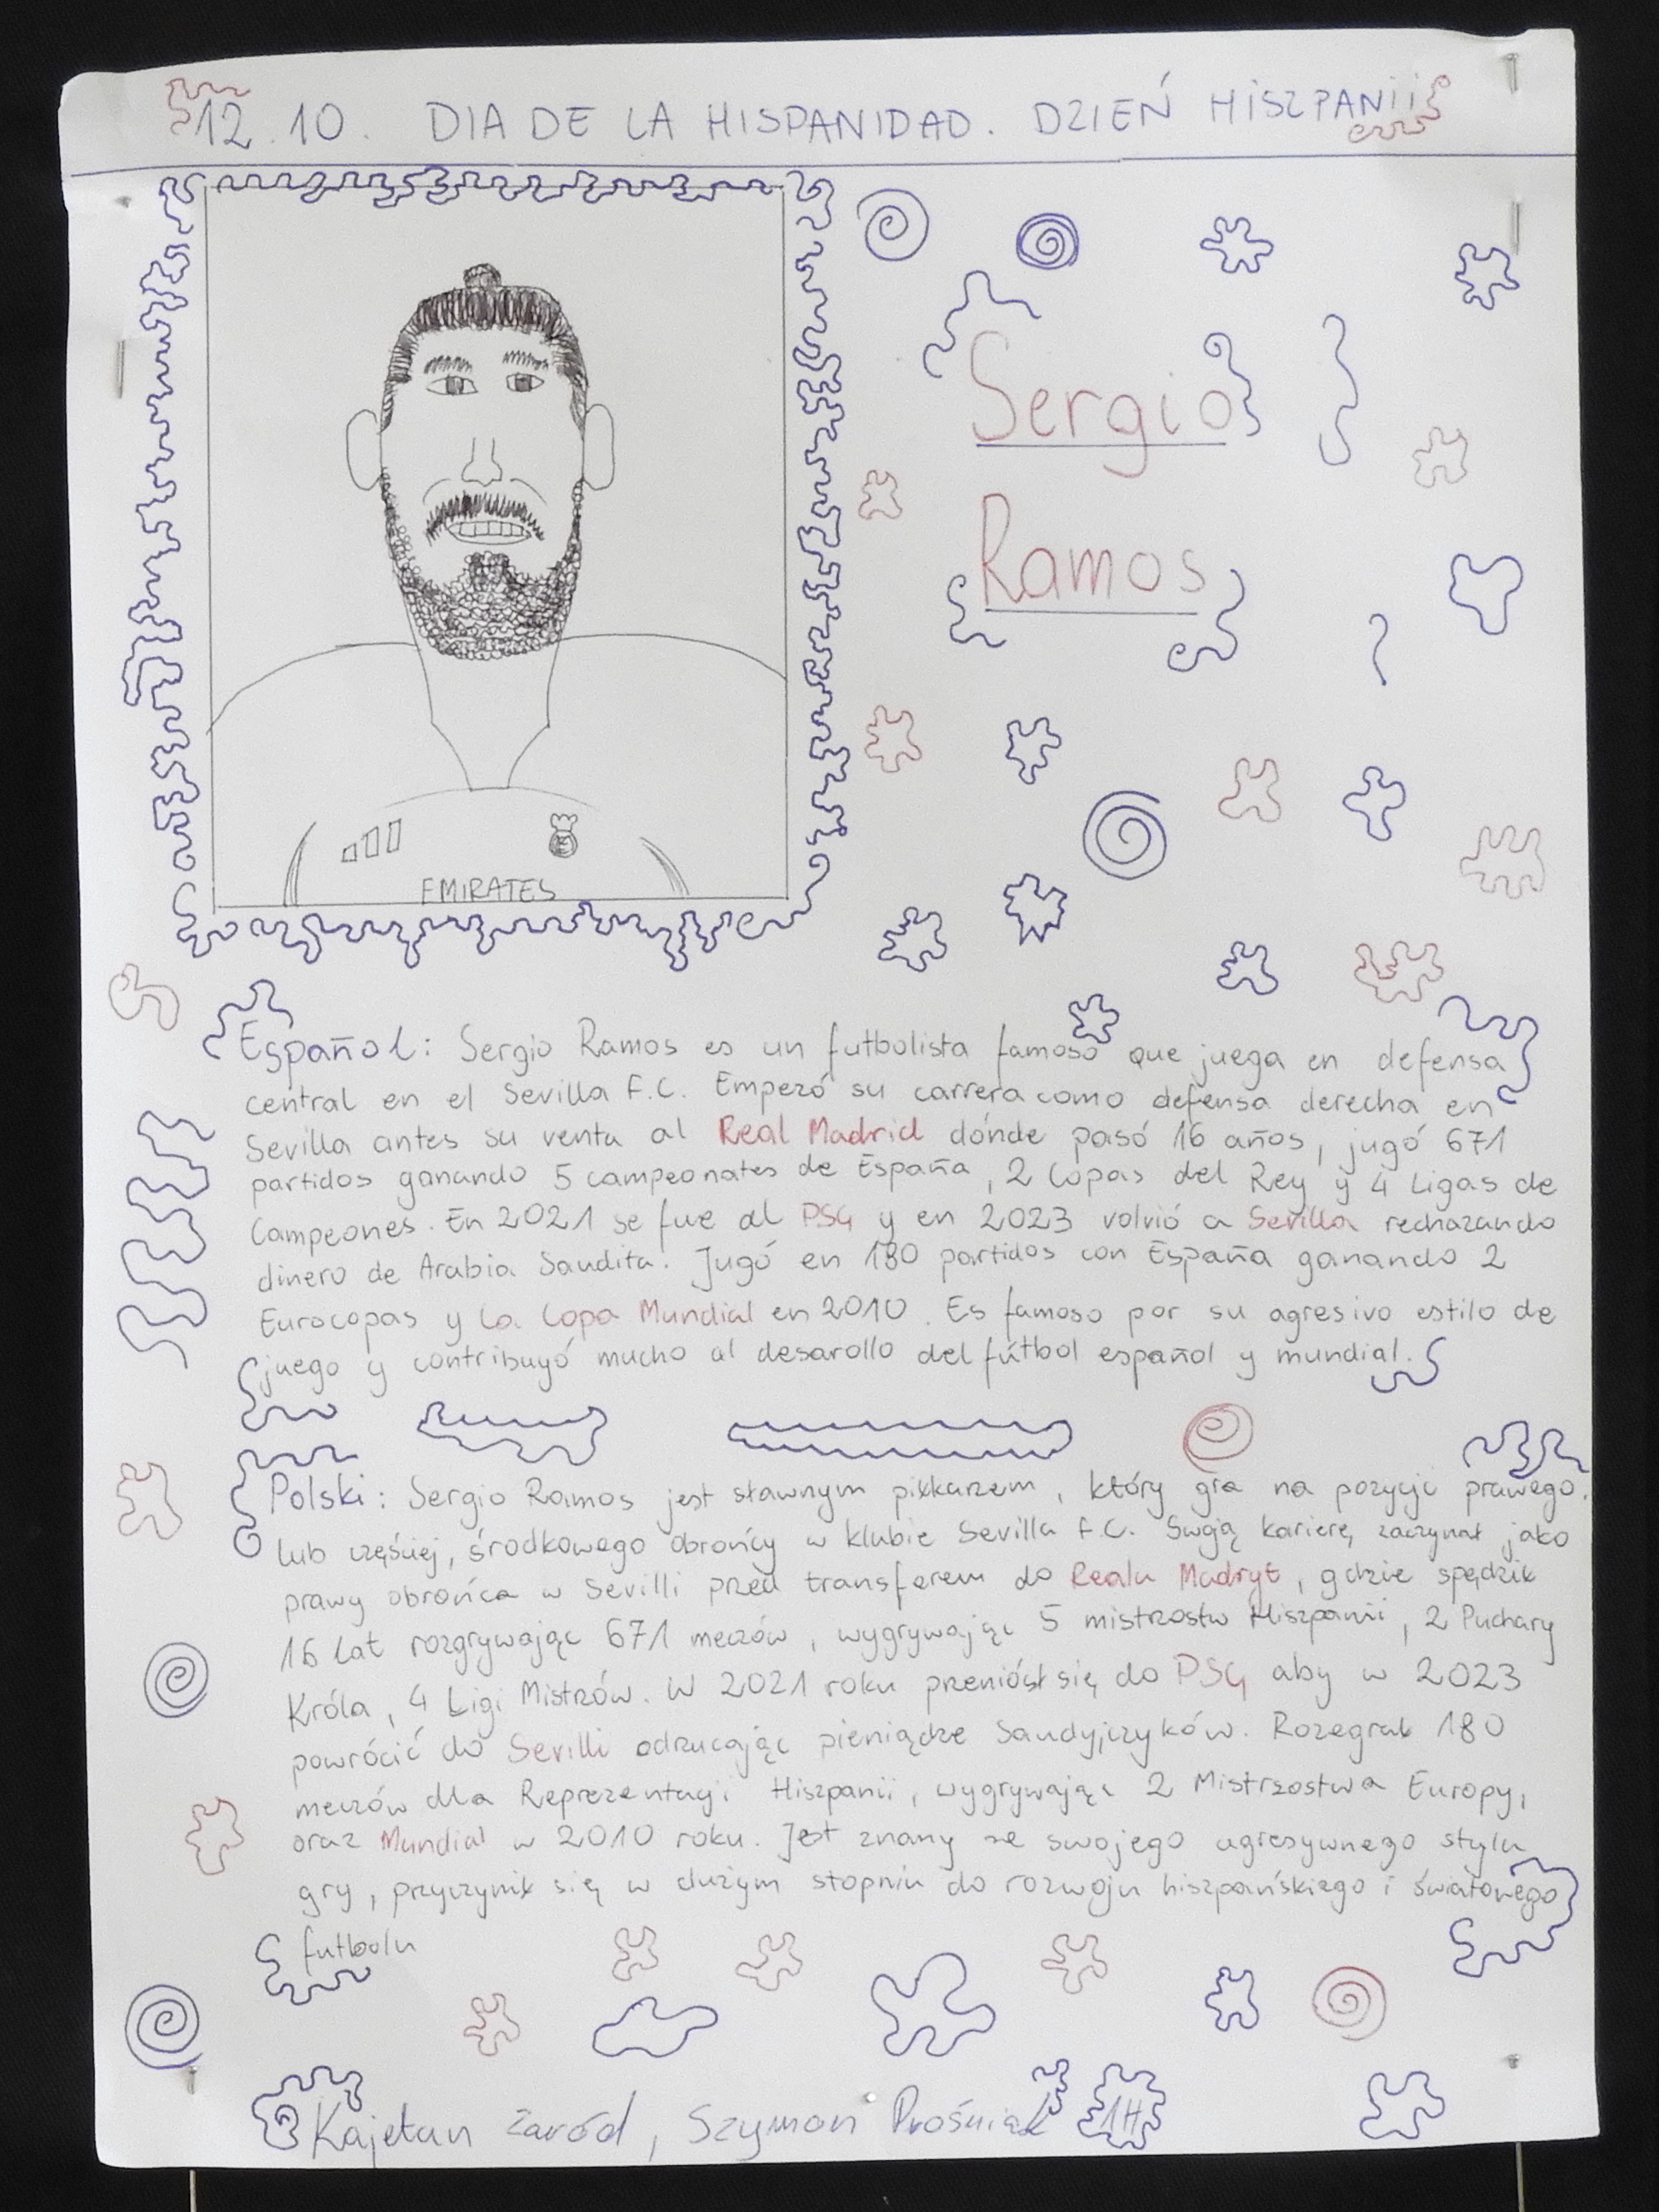 12.10. DIA DE LA HISPANIDAD. DZIEŃ HISZPANII
Sergio
Ramos
EMIRATES
Español: Sergio Ramos es un futbolista famoso que juega en defensa
central en el Sevilla F.C. Emperó su carrera como defensa derecha en
Sevilla antes su venta al Real Madrid dónde pasó 16 años, jugó 671
partidos ganando 5 campeonates de España, 2 Copas del Rey y 4 Ligas de
Campeones. En 2021 se fue al PSG y en 2023 volvió a Sevilla rechazando
dinero de Arabia Saudita. Jugó en 180 partidos con España ganando 2
Eurocopas y la Copa Mundial en 2010. Es famoso por su agresivo estilo de
juego y contribuyó mucho al desarollo del fútbol español y mundial.
Polski: Sergio Ramos jest sławnym piłkarzem, który gra na pozycji prawego,
lub częściej, środkowego obrońcy w klubie Sevilla F.C. Swoją karierę zaczynał jako
prawy obrońca w Sevilli przed transferem do Realu Madryt, gdzie spędził
16 lat rozgrywając 671 meczów, wygrywając 5 mistrzostw Hiszpanii, 2 Puchary
Króla, 4 Ligi Mistrzów. W 2021 roku przeniósł się do PSG aby w 2023
powrócić do Sevilli odrzucając pieniądze Saudyjczyków. Rozegrał 180
meczów dla Reprezentacji Hiszpanii, wygrywając 2 Mistrzostwa Europy,
oraz Mundial w 2010 roku. Jest znany ze swojego agresywnego stylu
gry, przyczynił się w dużym stopniu do rozwoju hiszpańskiego i światowego
futbolu
Kajetan Żaród, Szymon Prośniak 1H